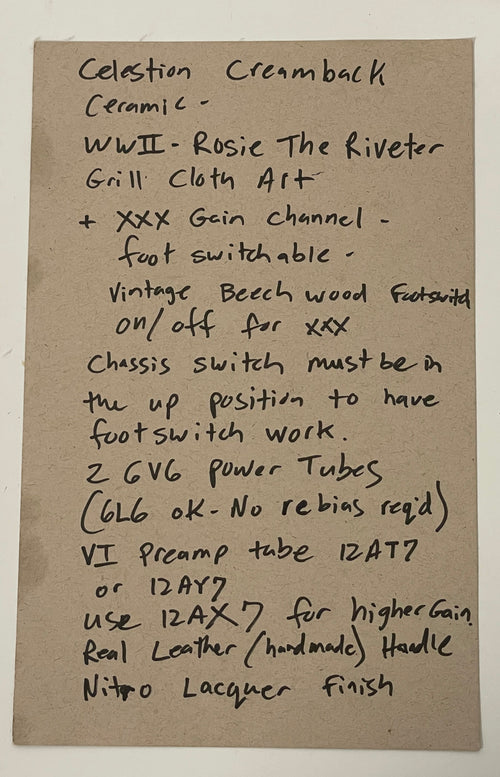 Celestion Creamback
Ceramic -
WWII - Rosie The Riveter
Grill Cloth Art
+ XXX Gain channel -
foot switchable -
Vintage Beech wood Footswitch
on/off for XXX
Chassis switch must be in
the up position to have
footswitch work.
2 6V6 power Tubes
(6L6 OK - No rebias req'd)
V1 Preamp tube 12AT7
or 12AY7
use 12AX7 for higher Gain.
Real Leather (handmade) Handle
Nitro Lacquer Finish